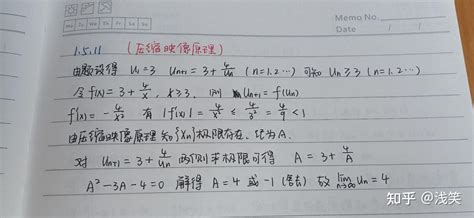 Memo No.
Mo Tu We Th Fr Sa Su
Date / /
1.5.11 (压缩映像原理)
由题设得 u₁=3 uₙ₊₁=3+4/uₙ (n=1.2…) 可知 uₙ≥3 (n=1.2…)
令 f(x)=3+4/x, x≥3, 则 uₙ₊₁=f(uₙ)
f'(x)=-4/x² 有 |f'(x)|=4/x²≤4/3²=4/9<1
由压缩映像原理知{xₙ}极限存在、记为A.
对 uₙ₊₁=3+4/uₙ 两侧求极限可得 A=3+4/A
A²-3A-4=0 解得 A=4 或 -1 (舍去) 故 lim n→∞ uₙ=4
知乎 @浅笑